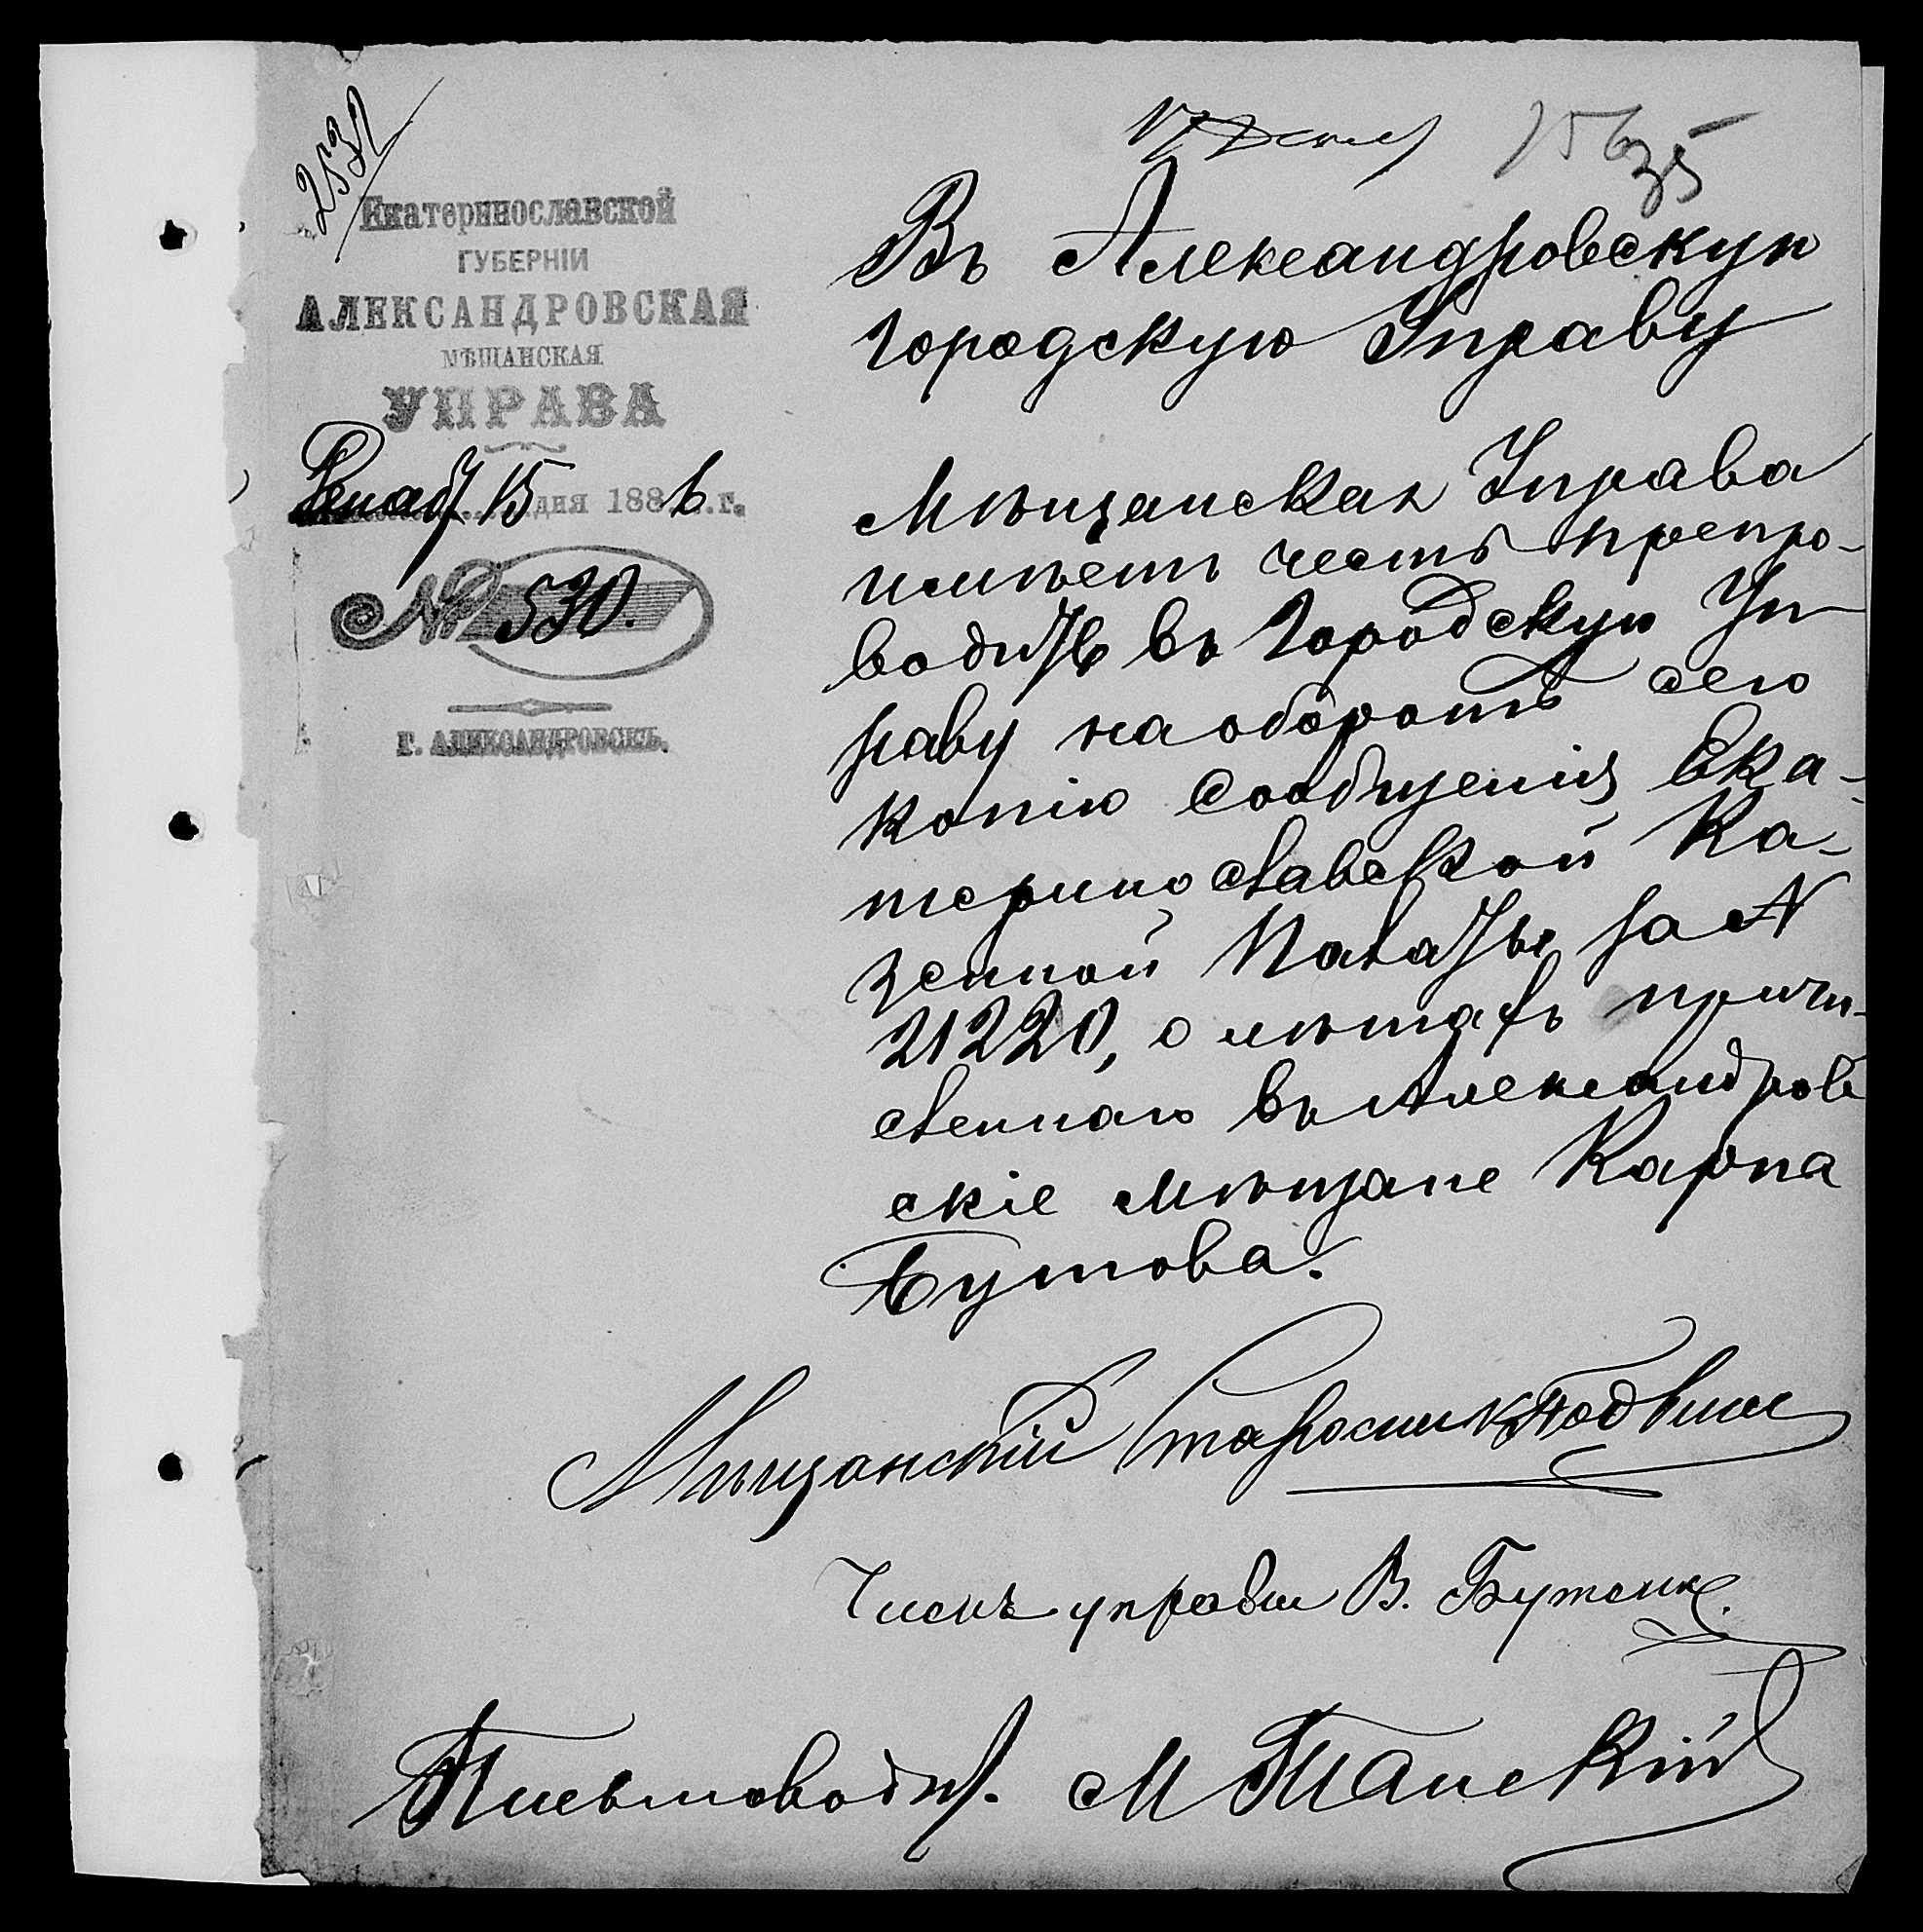 2532
17 Дек
156
35
Екатеринославской
ГУБЕРНІИ
АЛЕКСАНДРОВСКАЯ
МѢЩАНСКАЯ
УПРАВА
Декабр 15 дня 1886 г.
№ 530.
Г. АЛЕКСАНДРОВСКЪ.
Въ Александровскую
Городскую Управу
Мѣщанская Управа
имѣетъ честь препро-
водить въ Городскую Уп-
раву на оборотѣ сего
копію сообщенія Ека-
теринославской Ка-
зенной Палаты за №
21220, о лѣтахъ причи-
сленнаго въ Александров
скіе мѣщане Карпа
Бутова.
Мѣщанскій Староста
Членъ управы В. Бутенк
Письмоводит. М Танскій